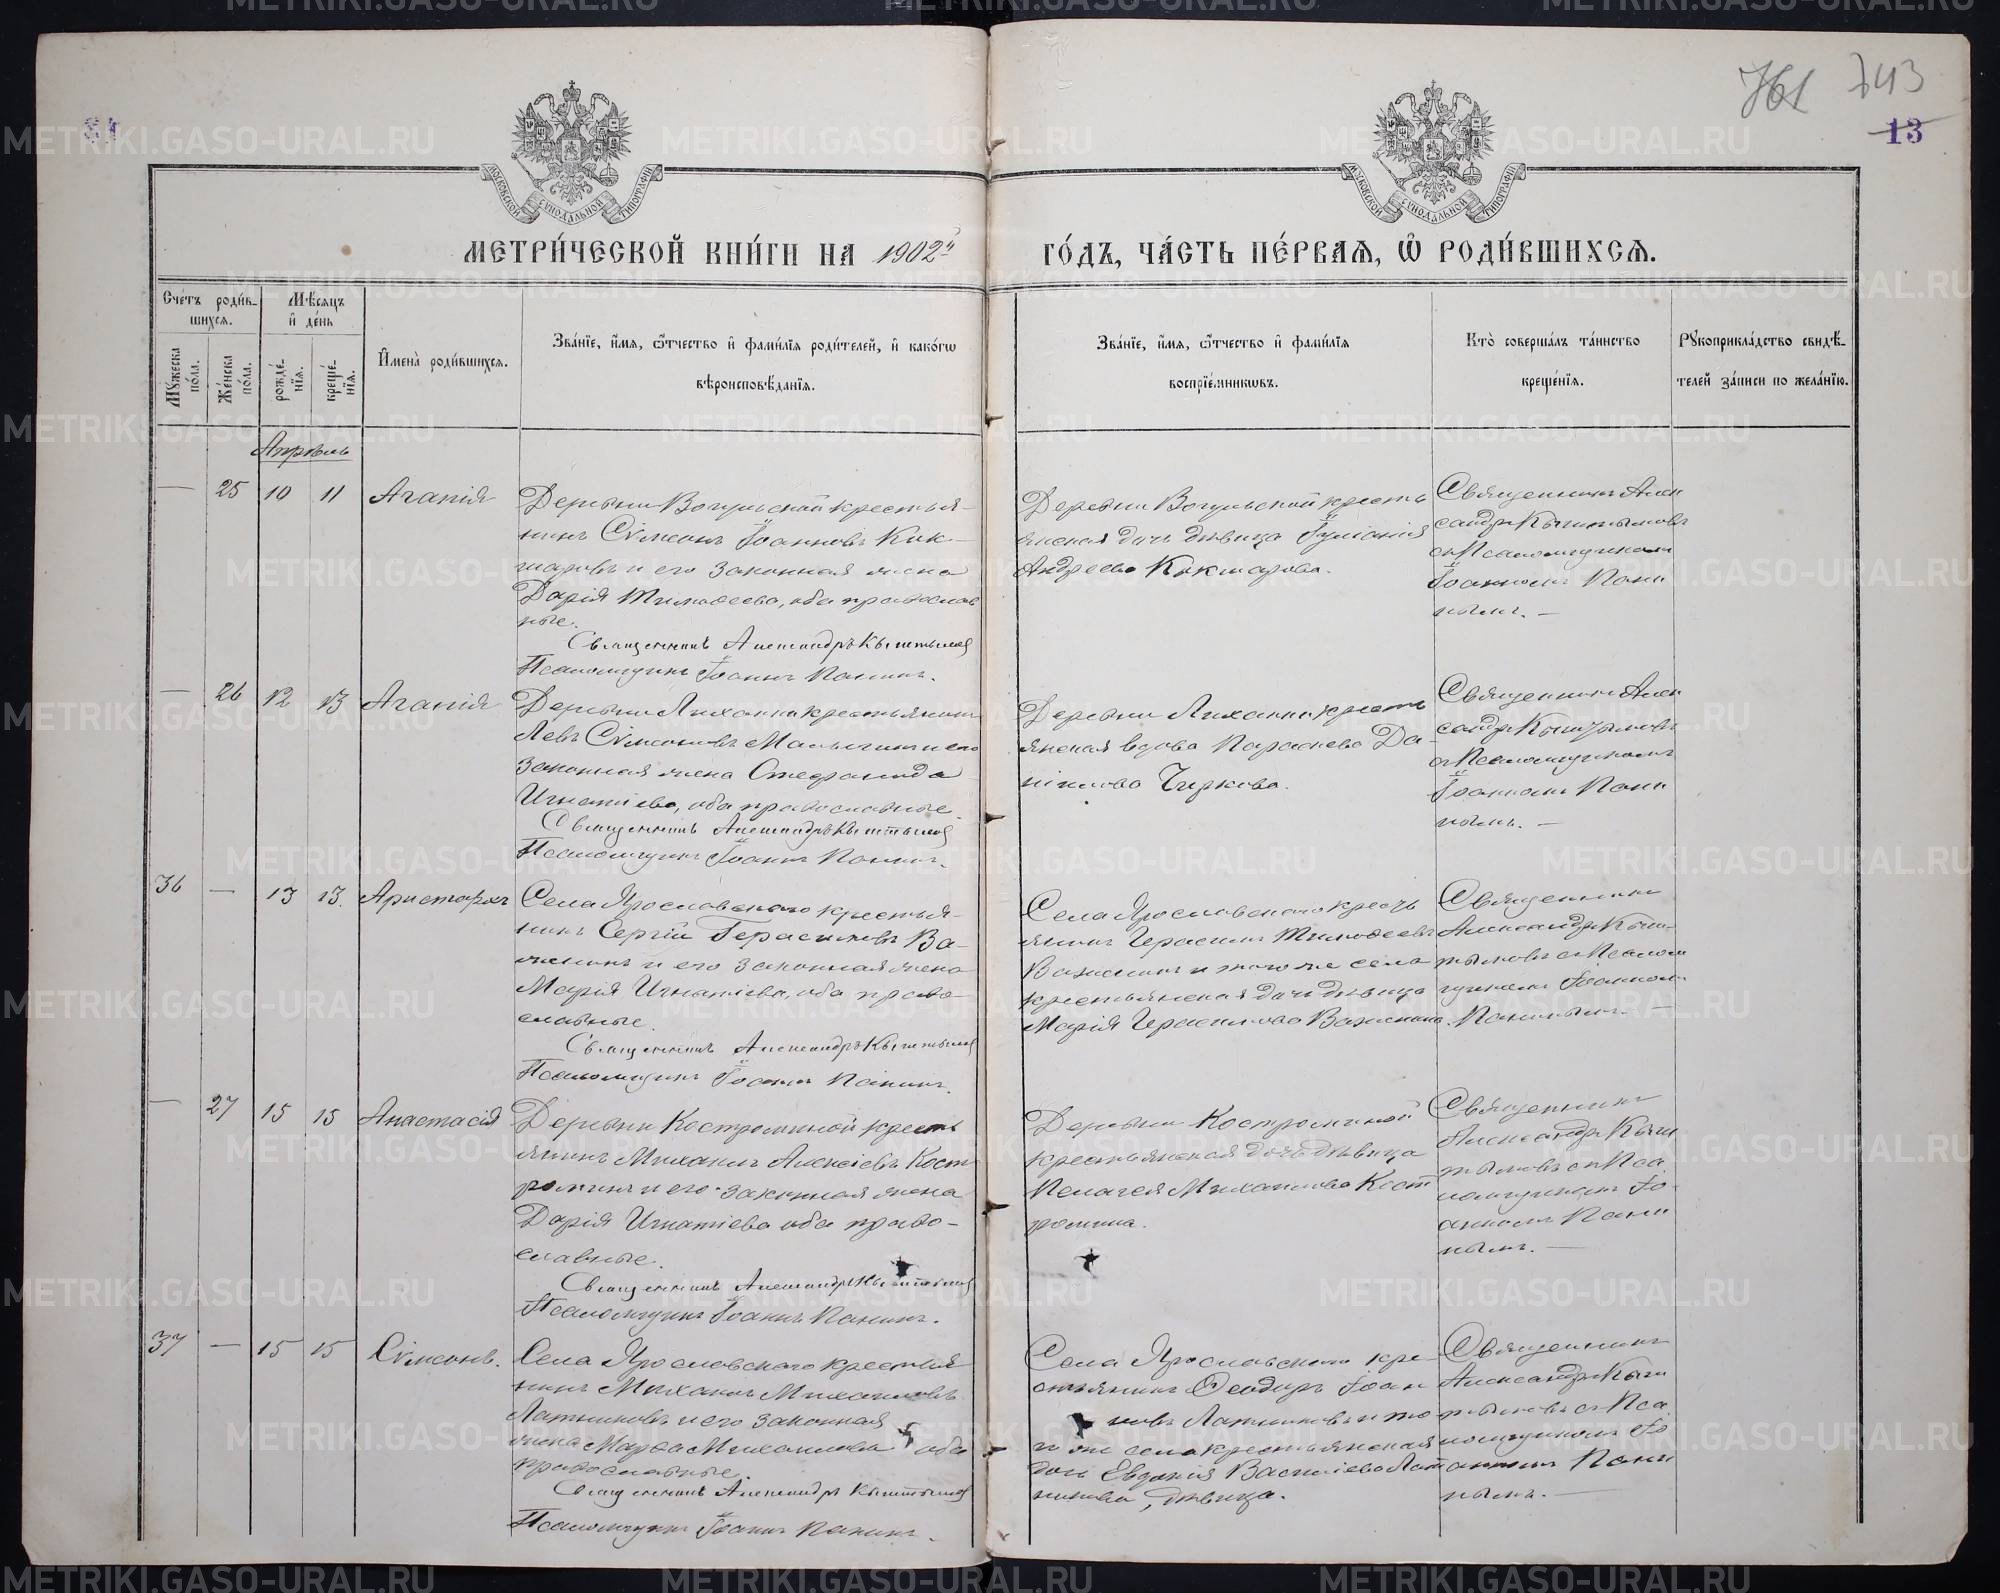 761 743
13
МОСКОВСКОЙ СѴНОДАЛЬНОЙ ТИПОГРАФІИ
МОСКОВСКОЙ СѴНОДАЛЬНОЙ ТИПОГРАФІИ
МЕТРИ́ЧЕСКОЙ КНИ́ГИ НА 1902й ГО́ДЪ, ЧА́СТЬ ПЕ́РВАѦ, Ѿ РОДИ́ВШИХСѦ.
Сче́тъ роди́в-
шихсѧ.
Мѣ́сѧцъ
и҆ де́нь
Мꙋ́жеска
по́ла.
Же́нска
по́ла.
рожде́-
нїѧ.
креще́-
нїѧ.
И҆мена̀ роди́вшихсѧ.
Зва́нїе, и҆́мѧ, ѻ҆́тчество и҆ фами́лїѧ роди́телей, и҆ како́гѡ
вѣроисповѣ́данїѧ.
Зва́нїе, и҆́мѧ, ѻ҆́тчество и҆ фами́лїѧ
воспрїе́мникѡвъ.
Кто̀ соверша́лъ та́инство
креще́нїѧ.
Рꙋкоприкла́дство свидѣ́-
телей за́писи по жела́нїю.
Апрѣль
— 25 10 11 Агапія
Деревни Вогульской крестья-
нинъ Сѵмеонъ Іоанновъ Кок-
шаровъ и его законная жена
Дарія Тимоѳеева, оба православ
ные.
Священникъ Александръ Кыштымов
Псаломщикъ Іоаннъ Панинъ.
Деревни Вогульской кресть
янская дочь дѣвица Іуліанія
Андреева Кокшарова.
Священникъ Алек
сандръ Кыштымовъ
съ Псаломщикомъ
Іоанномъ Пани
нымъ. —
— 26 12 13 Агапія
Деревни Лиханки крестьянинъ
Левъ Сѵмеоновъ Мальгинъ и его
законная жена
Игнатіева, оба православные.
Священникъ Александръ Кыштымов
Псаломщикъ Іоаннъ Панинъ.
Деревни Лиханки кресть
янская вдова Параскева Да-
ніилова Чиркова.
Священникъ Алек
сандръ Кыштымовъ
съ Псаломщикомъ
Іоанномъ Пани
нымъ. —
36 — 13 13. Аристархъ
Села Ярославскаго крестья-
нинъ Сергій Герасимовъ Ва-
женинъ и его законная жена
Марія Игнатіева, оба право-
славные.
Священникъ Александръ Кыштымов
Псаломщикъ Іоаннъ Панинъ.
Села Ярославскаго кресть
янинъ Герасимъ Тимоѳеевъ
Важенинъ и того же села
крестьянская дочь дѣвица
Марія Герасимова Важенина.
Священникъ
Александръ Кыш-
тымовъ съ Псалом
щикомъ Іоанномъ
Панинымъ. —
— 27 15 15 Анастасія
Деревни Костроминой кресть
янинъ Михаилъ Алексіевъ Кост
роминъ и его законная жена
Дарія Игнатіева оба право-
славные.
Священникъ Александръ Кыштымов
Псаломщикъ Іоаннъ Панинъ.
Деревни Костроминой
крестьянская дочь дѣвица
Пелагея Михаилова Кост
ромина.
Священникъ
Александръ Кыш
тымовъ съ Пса
ломщикомъ Іо-
анномъ Пани
нымъ. —
37 — 15 15 Сѵмеонъ.
Села Ярославскаго крестья
нинъ Михаилъ Михаиловъ
Латниковъ и его законная
жена Марѳа Михаилова оба
православные.
Священникъ Александръ Кыштымов
Псаломщикъ Іоаннъ Панинъ.
Села Ярославскаго кре-
стьянинъ Ѳеодоръ Іоан
новъ Латниковъ и то
го же села крестьянская
дочь Евдокія Василіева Лат
никова, дѣвица.
Священникъ
Александръ Кыш
тымовъ съ Пса
ломщикомъ Іо
анномъ Пани
нымъ. —
METRIKI.GASO-URAL.RU